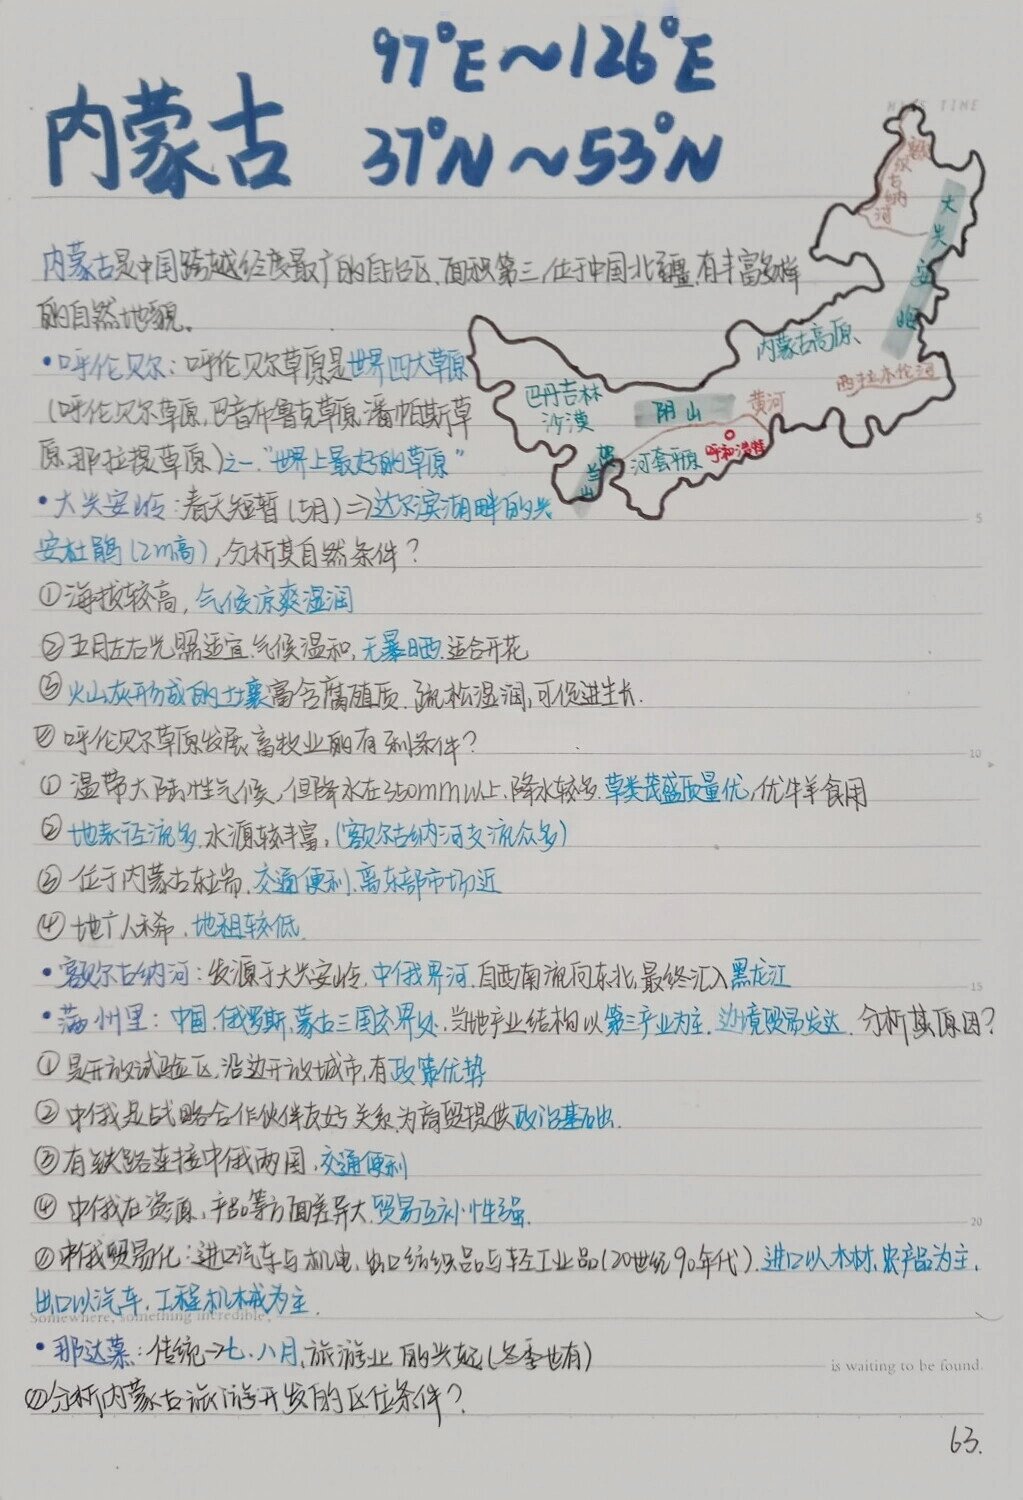 97°E～126°E
内蒙古
37°N～53°N
TIME
额尔古纳河
大兴安岭
内蒙古是中国跨越经度最广的自治区，面积第三，位于中国北疆，有丰富多样
的自然地貌。
内蒙古高原
西拉木伦河
巴丹吉林
沙漠
阴山
黄河
呼和浩特
河套平原
贺兰山
•呼伦贝尔：呼伦贝尔草原是世界四大草原
(呼伦贝尔草原，巴音布鲁克草原，潘帕斯草
原，那拉提草原)之一，"世界上最好的草原"
•大兴安岭：春天短暂(5月)⇒达尔滨湖畔的兴
安杜鹃(2m高)，分析其自然条件？
①海拔较高，气候凉爽湿润
②五月左右光照适宜，气候温和，无暴晒，适合开花
③火山灰形成的土壤富含腐殖质，疏松湿润，可促进生长.
呼伦贝尔草原发展畜牧业的有利条件？
①温带大陆性气候，但降水在350mm以上，降水较多，草类茂盛质量优，优牛羊食用
②地表径流多，水源较丰富，(额尔古纳河支流众多)
③位于内蒙古东端，交通便利，离东部市场近
④地广人稀，地租较低.
•额尔古纳河：发源于大兴安岭，中俄界河，自西南流向东北，最终汇入黑龙江
•满州里：中国，俄罗斯，蒙古三国交界处，当地产业结构以第三产业为主，边境贸易发达，分析其原因？
①是开放试验区，沿边开放城市，有政策优势
②中俄是战略合作伙伴友好关系，为商贸提供政治基础.
③有铁路连接中俄两国，交通便利
④中俄在资源，产品等方面差异大，贸易互补性强.
中俄贸易化：进口汽车与机电，出口纺织品与轻工业品(20世纪90年代)，进口以木材，农产品为主，
出口以汽车，工程机械为主.
Somewhere, something incredible,
•那达慕：传统→七、八月，旅游业的兴起(冬季也有)
is waiting to be found.
分析内蒙古旅游开发的区位条件？
63.
5
10
15
20